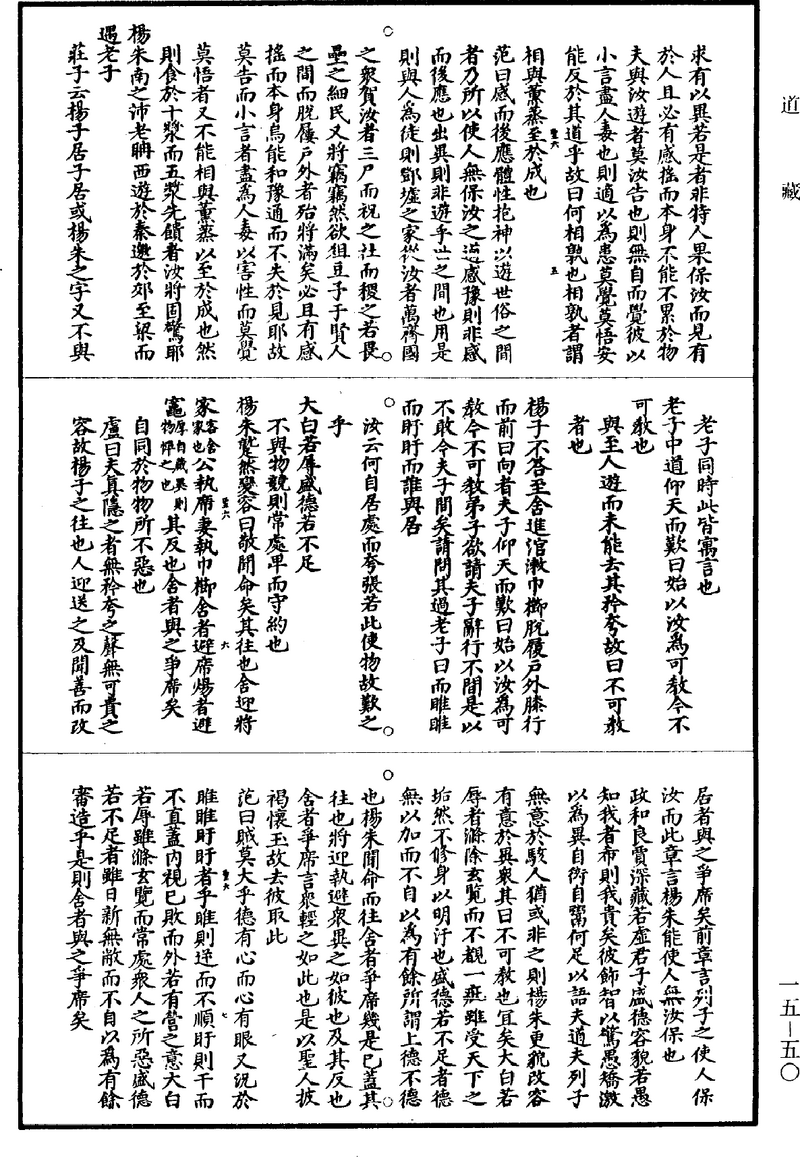 道藏
求有以異若是者非特人果保汝而見有
於人且必有感搖而本身不能不累於物
夫與汝遊者莫汝告也則無自而覺彼以
小言盡人毒也則適以為患莫覺莫悟安
能反於其道乎故曰何相孰也相孰者謂
相與薰蒸至於成也
范曰感而後應體性抱神以遊世俗之間
者乃所以使人無保汝之道感豫則非感
而後應也出異則非遊乎世之間也用是
則與人為徒則鄧墟之家從汝者萬齊國
之眾賀汝者三尸而祝之社而稷之若畏
壘之細民又將竊竊然欲俎豆子于賢人
之間而脫屨戶外者殆將滿矣必且有感
搖而本身烏能和豫通而不失於兌耶故
莫告而小言者盡為人毒以害性而莫覺
莫悟者又不能相與薰蒸以至於成也然
則食於十漿而五漿先饋者汝將固驚耶
楊朱南之沛老聃西遊於秦邀於郊至梁而
遇老子
莊子云楊子居子居或楊朱之字又不與
老子同時此皆寓言也
老子中道仰天而歎曰始以汝為可教今不
可教也
與至人遊而未能去其矜夸故曰不可教
者也
楊子不答至舍進涫漱巾櫛脫履戶外膝行
而前曰向者夫子仰天而歎曰始以汝為可
教今不可教弟子欲請夫子辭行不間是以
不敢今夫子間矣請問其過老子曰而睢睢
而盱盱而誰與居
汝云何自居處而夸張若此使物故歎之
乎
大白若辱盛德若不足
不與物競則常處卑而守約也
楊朱蹵然變容曰敬聞命矣其往也舍迎將
家客舍家也公執席妻執巾櫛舍者避席煬者避
竈厚自藏異則物憚之也其反也舍者與之爭席矣
自同於物物所不惡也
盧曰夫真隱之者無矜夸之聲無可貴之
容故楊子之往也人迎送之及聞善而改
居者與之爭席矣前章言列子之使人保
汝而此章言楊朱能使人無汝保也
政和良賈深藏若虛君子盛德容貌若愚
知我者希則我貴矣彼飾智以驚愚矯激
以為異自衒自鬻何足以語夫道夫列子
無意於駭人猶或非之則楊朱更貌改容
有意於異眾其曰不可教也宜矣大白若
辱者滌除玄覽而不覩一疵雖受天下之
垢然不修身以明汙也盛德若不足者德
無以加而不自以為有餘所謂上德不德
也楊朱聞命而往舍者爭席幾是已蓋其
往也將迎執避眾異之如彼也及其反也
舍者爭席言眾輕之如此也是以聖人披
褐懷玉故去彼取此
范曰賊莫大乎德有心而心有眼又況於
睢睢盱盱者乎睢則逆而不順盱則干而
不直蓋內視已敗而外若有營之意大白
若辱雖滌玄覽而常處眾人之所惡盛德
若不足者雖日新無敝而不自以為有餘
審造乎是則舍者與之爭席矣
一五－五〇